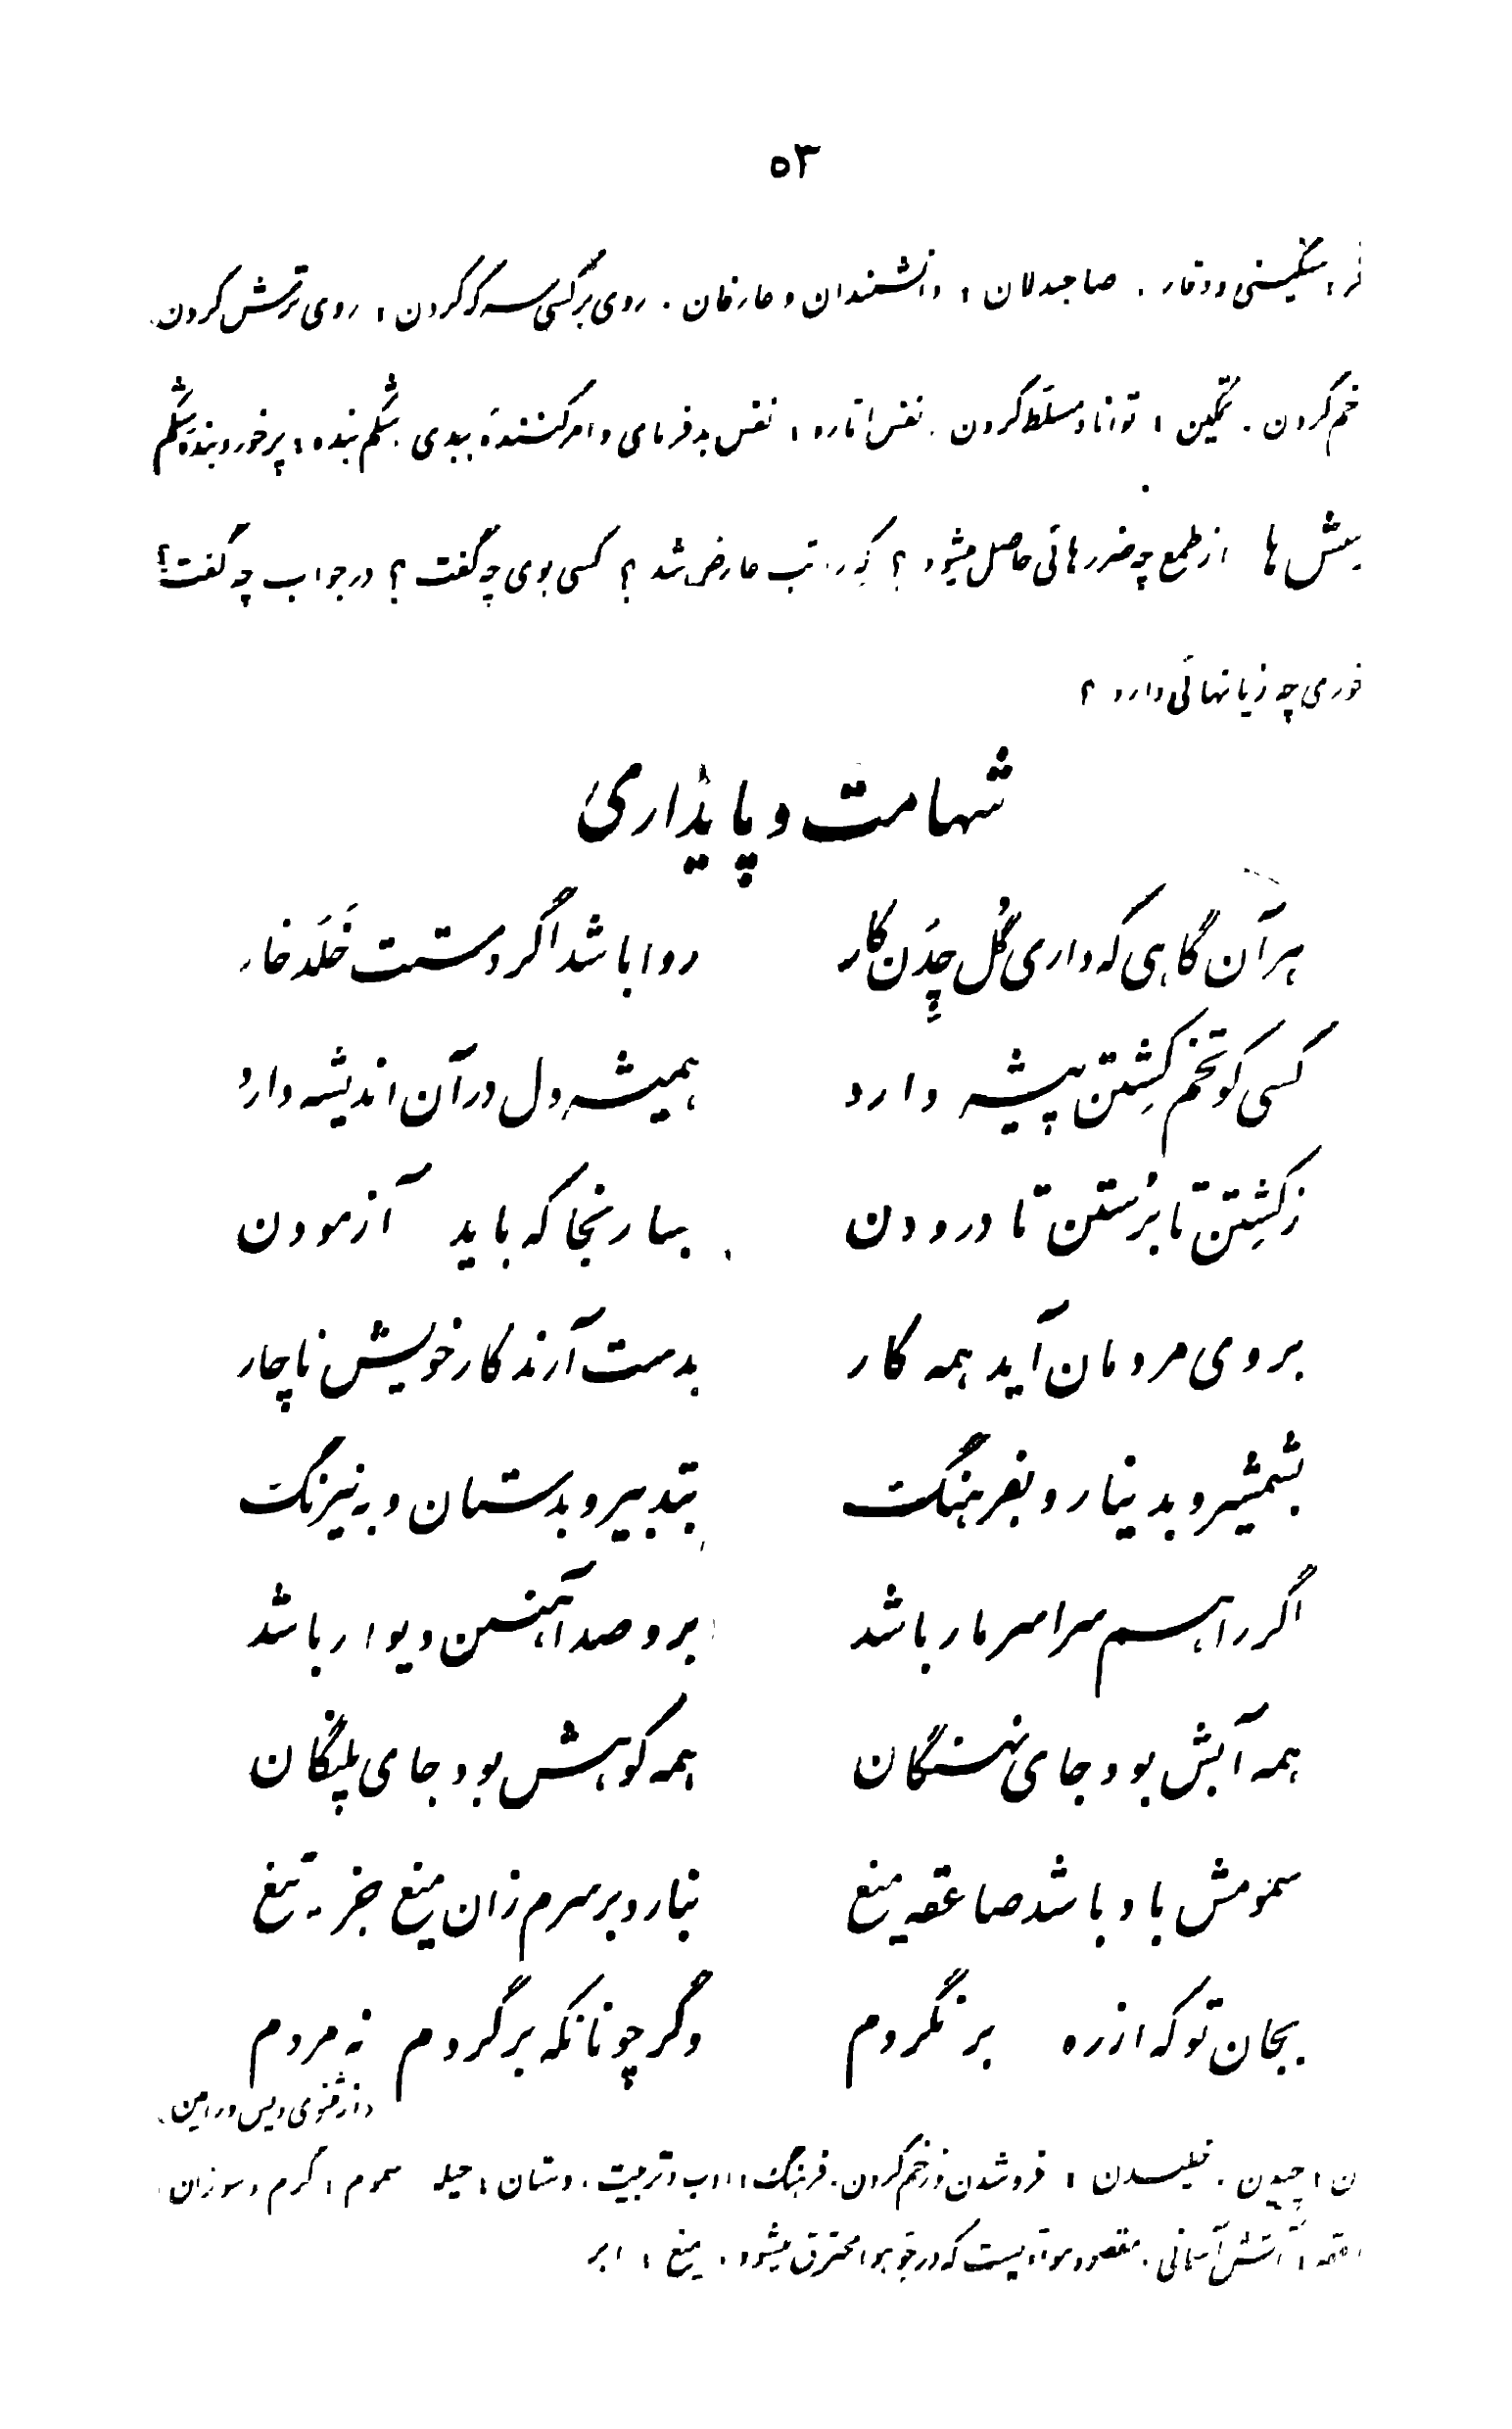 ۵۳
سنگینی و وقار . صاحبدلان ، دانشمندان و عارفان . روی بر کسی سرکه کردن ، روی ترش کردن .
خم کردن . تمکین ، توانا و مسلّط کردن . نفس امّاره ، نفس بدفرمای و امرکنندهٔ ببدی . شکم بنده ، پرخور و بندهٔ شکم
از طمع چه ضررهائی حاصل میشود ؟ که را تب عارض شد ؟ کسی بوی چه گفت ؟ در جواب چه گفت ؟
چه زیانهائی دارد ؟
شهامت و پایداری
هر آن گاهی که داری گُل چِدَن کار
روا باشد اگر دستت خَلَد خار
کسی کو تخم کِشتن پیشه دارد
همیشه دل در آن اندیشه دارد
ز کِشتن تا برُستن تا درودن
بسا رنجا که باید آزمودن
بروی مردمان آید همه کار
بدست آرند کار خویش ناچار
بشمشیر و بدینار و بفرهنگ
بتدبیر و بدستان و به نیرنگ
اگر راهم سراسر مار باشد
برو صد آهنین دیوار باشد
همه آبش بود جای نهنگان
همه کوهش بود جای پلنگان
سمومش باد و باشد صاعقه میغ
نبارد بر سرم زان میغ جز تیغ
بجان تو که از ره برنگردم
وگر چونانکه برگردم نه مردم
از مثنوی ویس و رامین
چیدن . خلیدن ، فرو شدن و زخم کردن . فرهنگ ، ادب و تربیت . دستان ، حیله سموم ، گرم و سوزان .
آتش آسمانی . مقصود موادیست که در جو هوا محترق میشود . میغ ، ابر